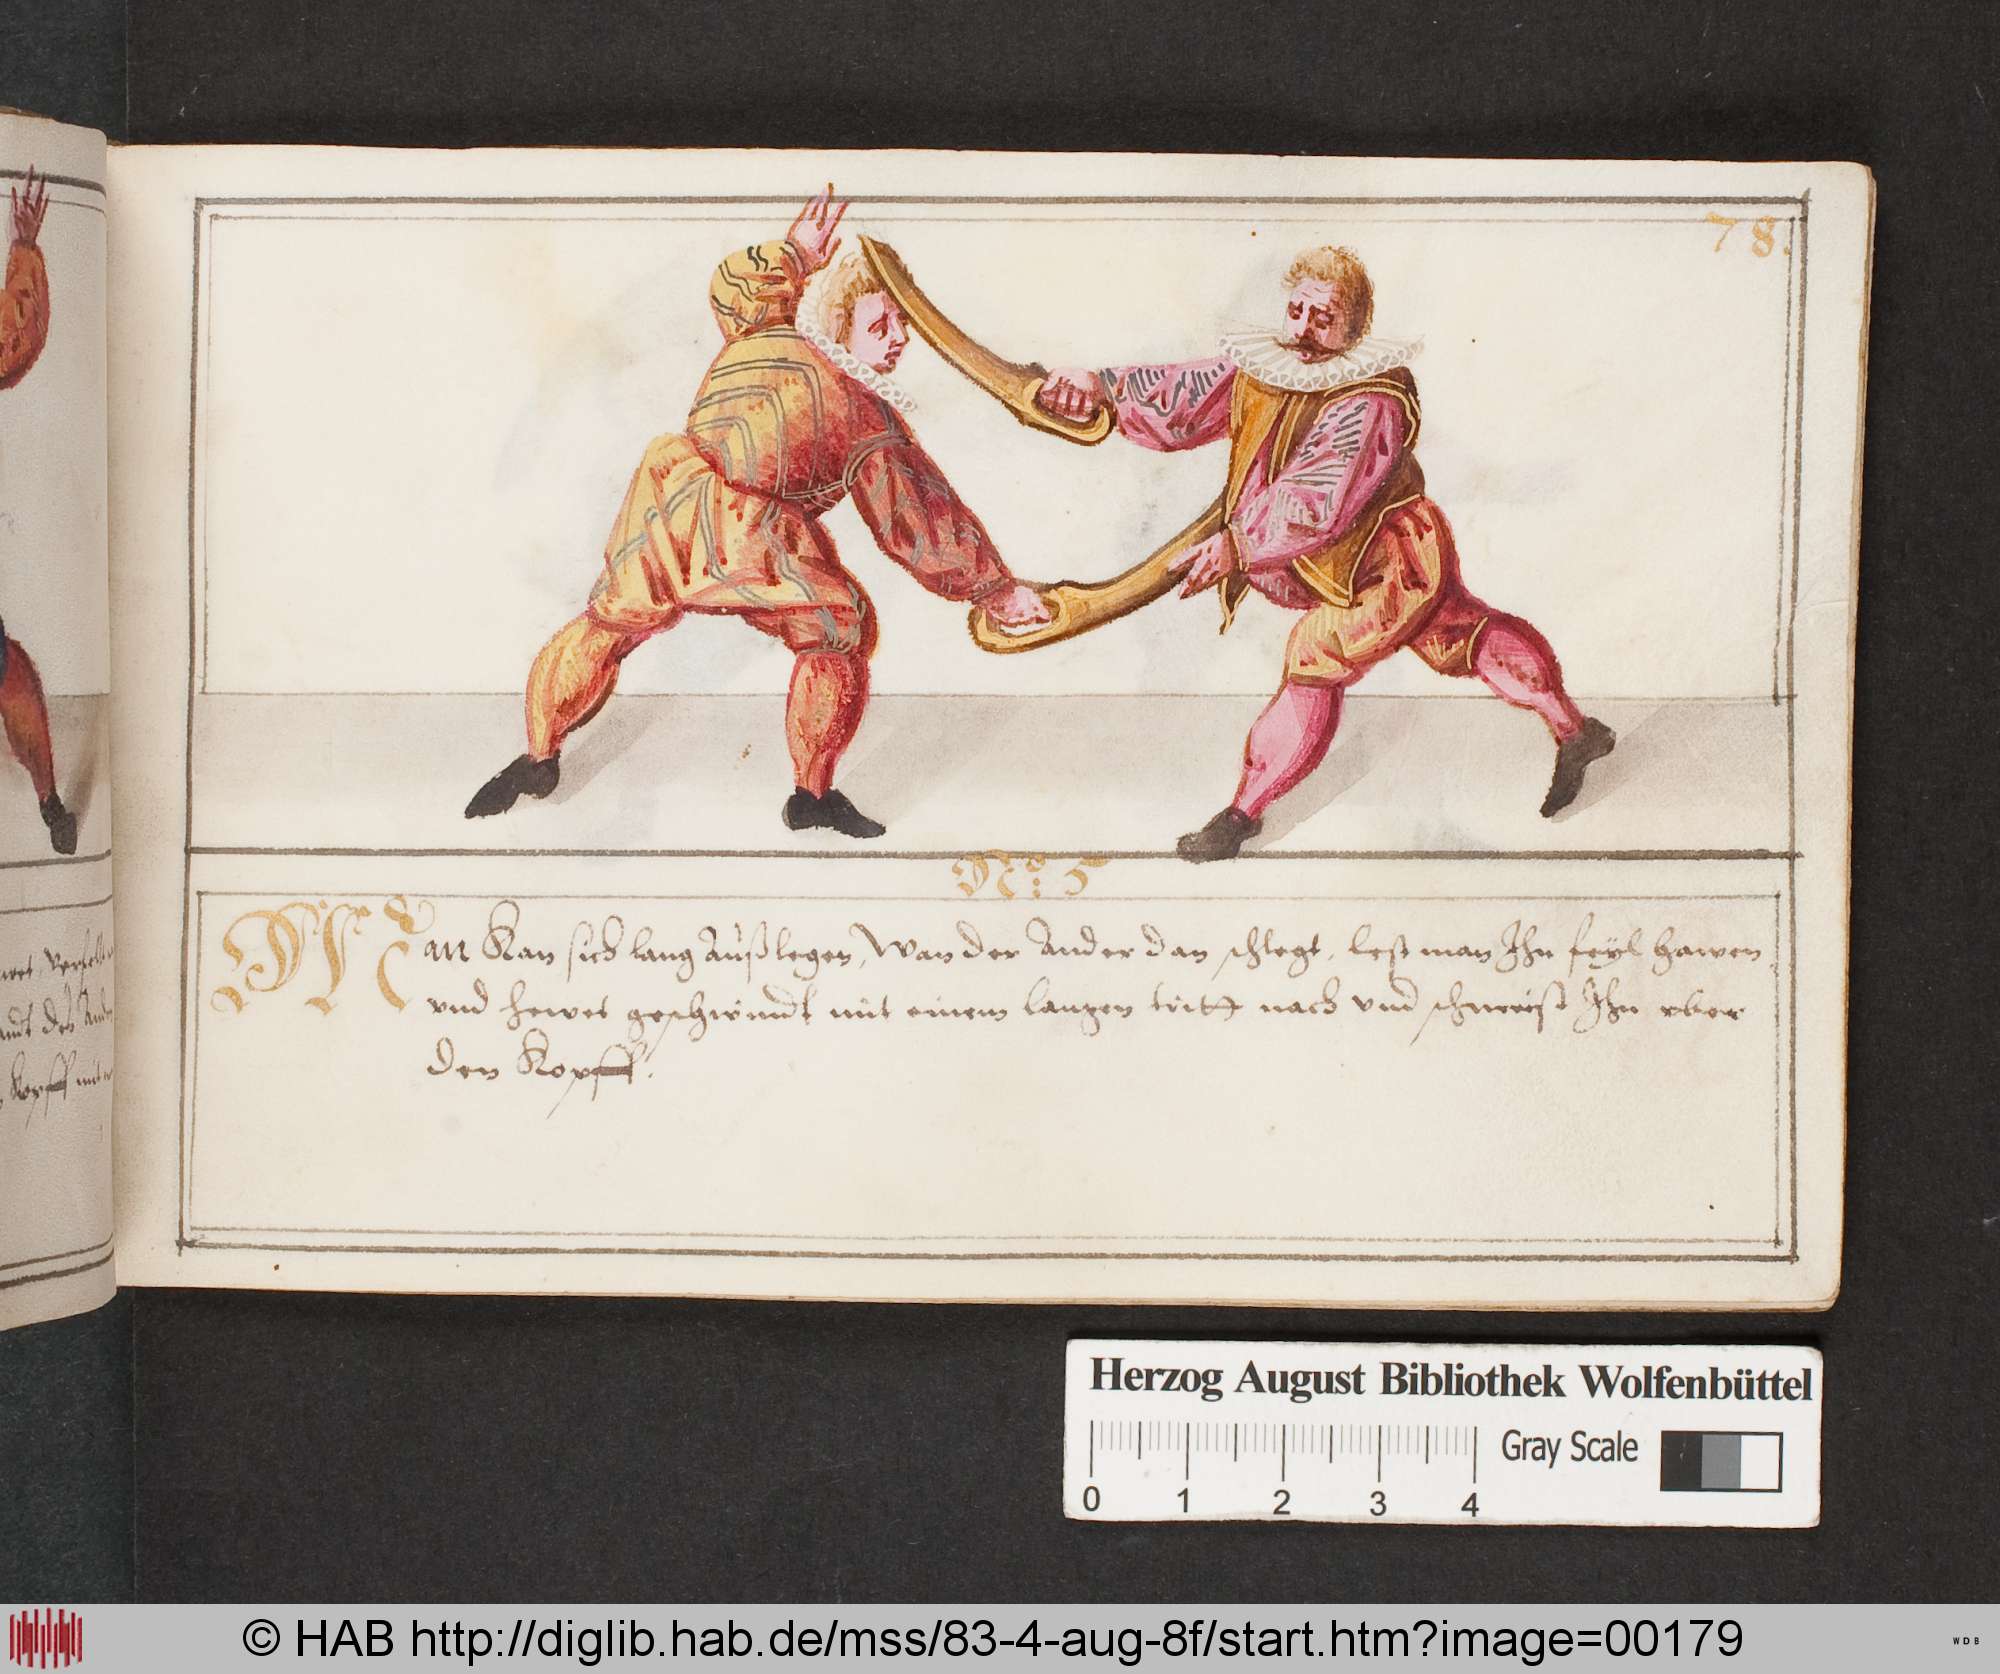 78.
No: 5
Man Kan sich lang Außlegen, Wan der Ander dan schlegt, lest man Ihn feyl hawen
vnd hewet geschwindt mit einem langen tritt nach vnd schmeist Ihn vber
den Kopff.
Kopff
Herzog August Bibliothek Wolfenbüttel
0 1 2 3 4
Gray Scale
© HAB http://diglib.hab.de/mss/83-4-aug-8f/start.htm?image=00179
WDB